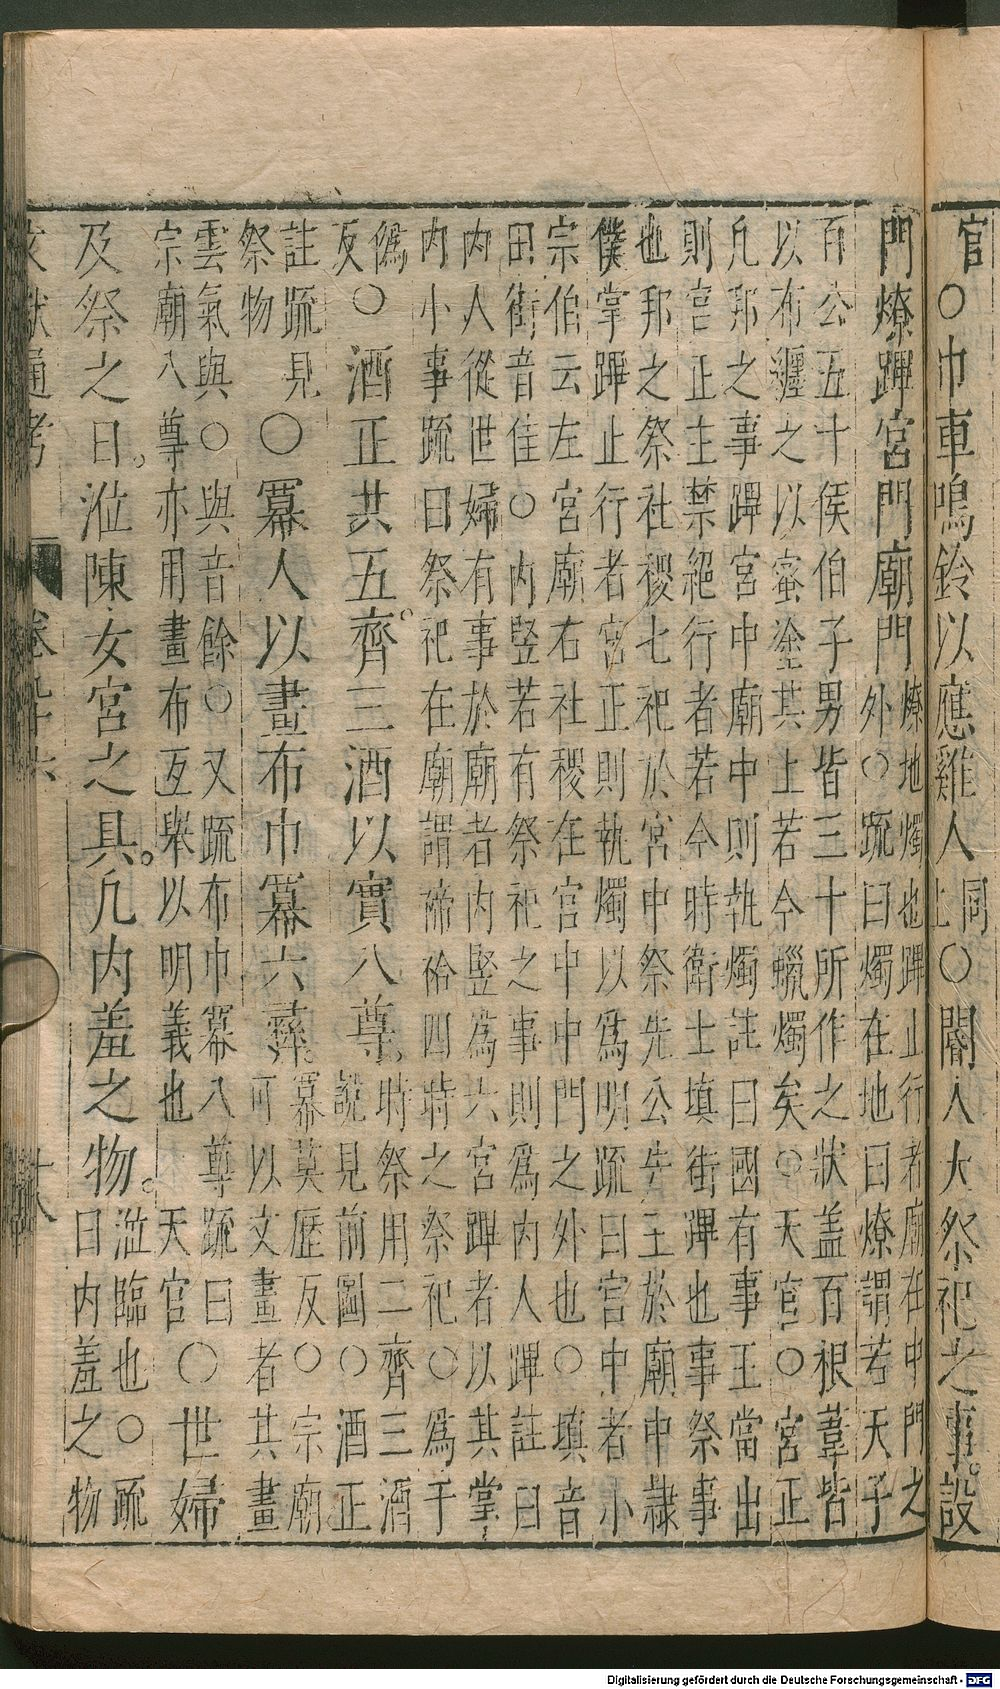 官○巾車鳴鈴以應雞人同上○閽人大祭祀之事設
門燎蹕宮門廟門
燎地燭也蹕止行者廟在中門之
外○疏曰燭在地曰燎謂若天子
百公五十侯伯子男皆三十所作之狀蓋百根葦皆
以布纏之以蜜塗其上若今蠟燭矣○天官○宮正
凡邦之事蹕宮中廟中則執燭註曰國有事王當出
則宮正主禁絕行者若今時衛士填街蹕也事祭事
也邦之祭社稷七祀於宮中祭先公先王於廟中隸
僕掌蹕止行者宮正則執燭以為明疏曰宮中者小
宗伯云左宮廟右社稷在宮中中門之外也○填音
田街音佳○內豎若有祭祀之事則為內人蹕註曰
內人從世婦有事於廟者內豎為六宮蹕者以其掌
內小事疏曰祭祀在廟謂禘祫四時之祭祀○為于
偽
反
○酒正共五齊。三酒以實八尊。
時祭用二齊三酒
說見前圖○酒正
註疏見
祭物
○冪人以畫布巾冪六彝。
冪莫歷反○宗廟
可以文畫者其畫
雲氣與○與音餘○又疏布巾冪八尊疏曰
宗廟八尊亦用畫布互舉以明義也天官
○世婦
及祭之日。涖陳女宮之具。凡內羞之物。
涖臨也○疏
曰內羞之物
文獻通考
十八
Digitalisierung gefördert durch die Deutsche Forschungsgemeinschaft - DFG